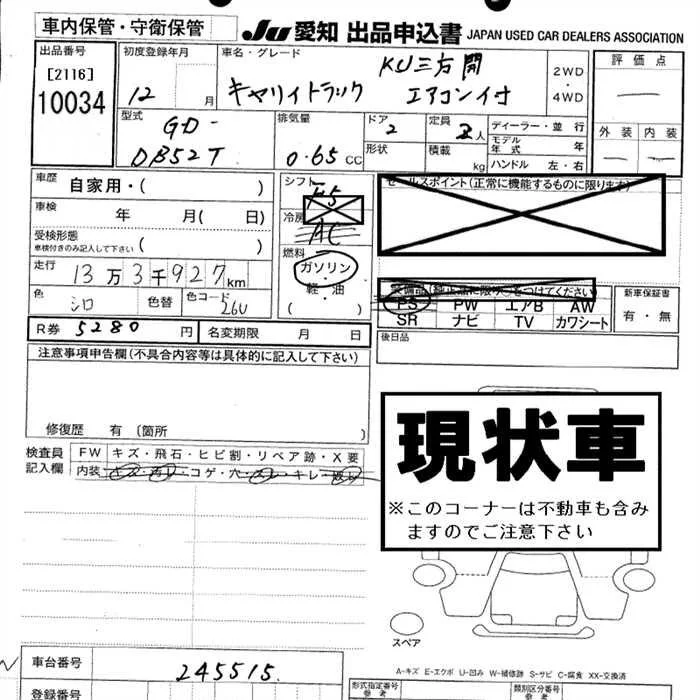 車内保管・守衛保管
Ju 愛知 出品申込書 JAPAN USED CAR DEALERS ASSOCIATION
出品番号
[2116]
10034
初度登録年月
12 月
車名・グレード
KU三方開
キャリイトラック エアコン付
2WD
・
4WD
評価点
外装 内装
型式
GD-
DB52T
排気量
0.65 CC
ドア
2
形状
定員
2人
積載
kg
ディーラー・並行
モデル年式 年
ハンドル 左・右
車歴 自家用・( )
車検 年 月( 日)
受検形態
車検付きのみ記入して下さい ( )
走行 13万3千927km
色 シロ 色替 色コード 26U
R券 5280 円 名変期限 月 日
シフト
F5
冷房
AC
燃料
ガソリン
・
軽・油
( )
セールスポイント(正常に機能するものに限ります)
装備品(純正品に限り○をつけてください)
PS PW エアB AW
SR ナビ TV カワシート
新車保証書
有・無
後日品
注意事項申告欄(不具合内容等は具体的に記入して下さい)
修復歴 有 〔箇所 〕
検査員
記入欄
FW キズ・飛石・ヒビ割・リペア跡・X要
内装 コゲ・穴・スレ・キレ・
現状車
※このコーナーは不動車も含み
ますのでご注意下さい
スペア
A-キズ E-エクボ U-凹み W-補修跡 S-サビ C-腐食 XX-交換済
車台番号 245515
登録番号
形式指定番号
参考
類別区分番号
参考